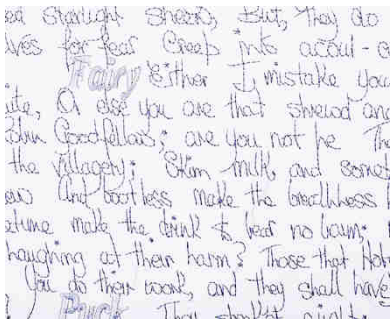 ed starlight sheen, But, they do
lves for fear Creep into acoui-c
Fairy Either I mistake you
uite, Or else you are that shrewd and
Robin Goodfellow; are you not he Th
the Villagery; Skim milk, and some
ern And bootless make the breathless h
etime make the drink to bear no barm;
haughing at their harm? Those that Hob
You do their work, and they shall have
Puck Thou speak'st aright;